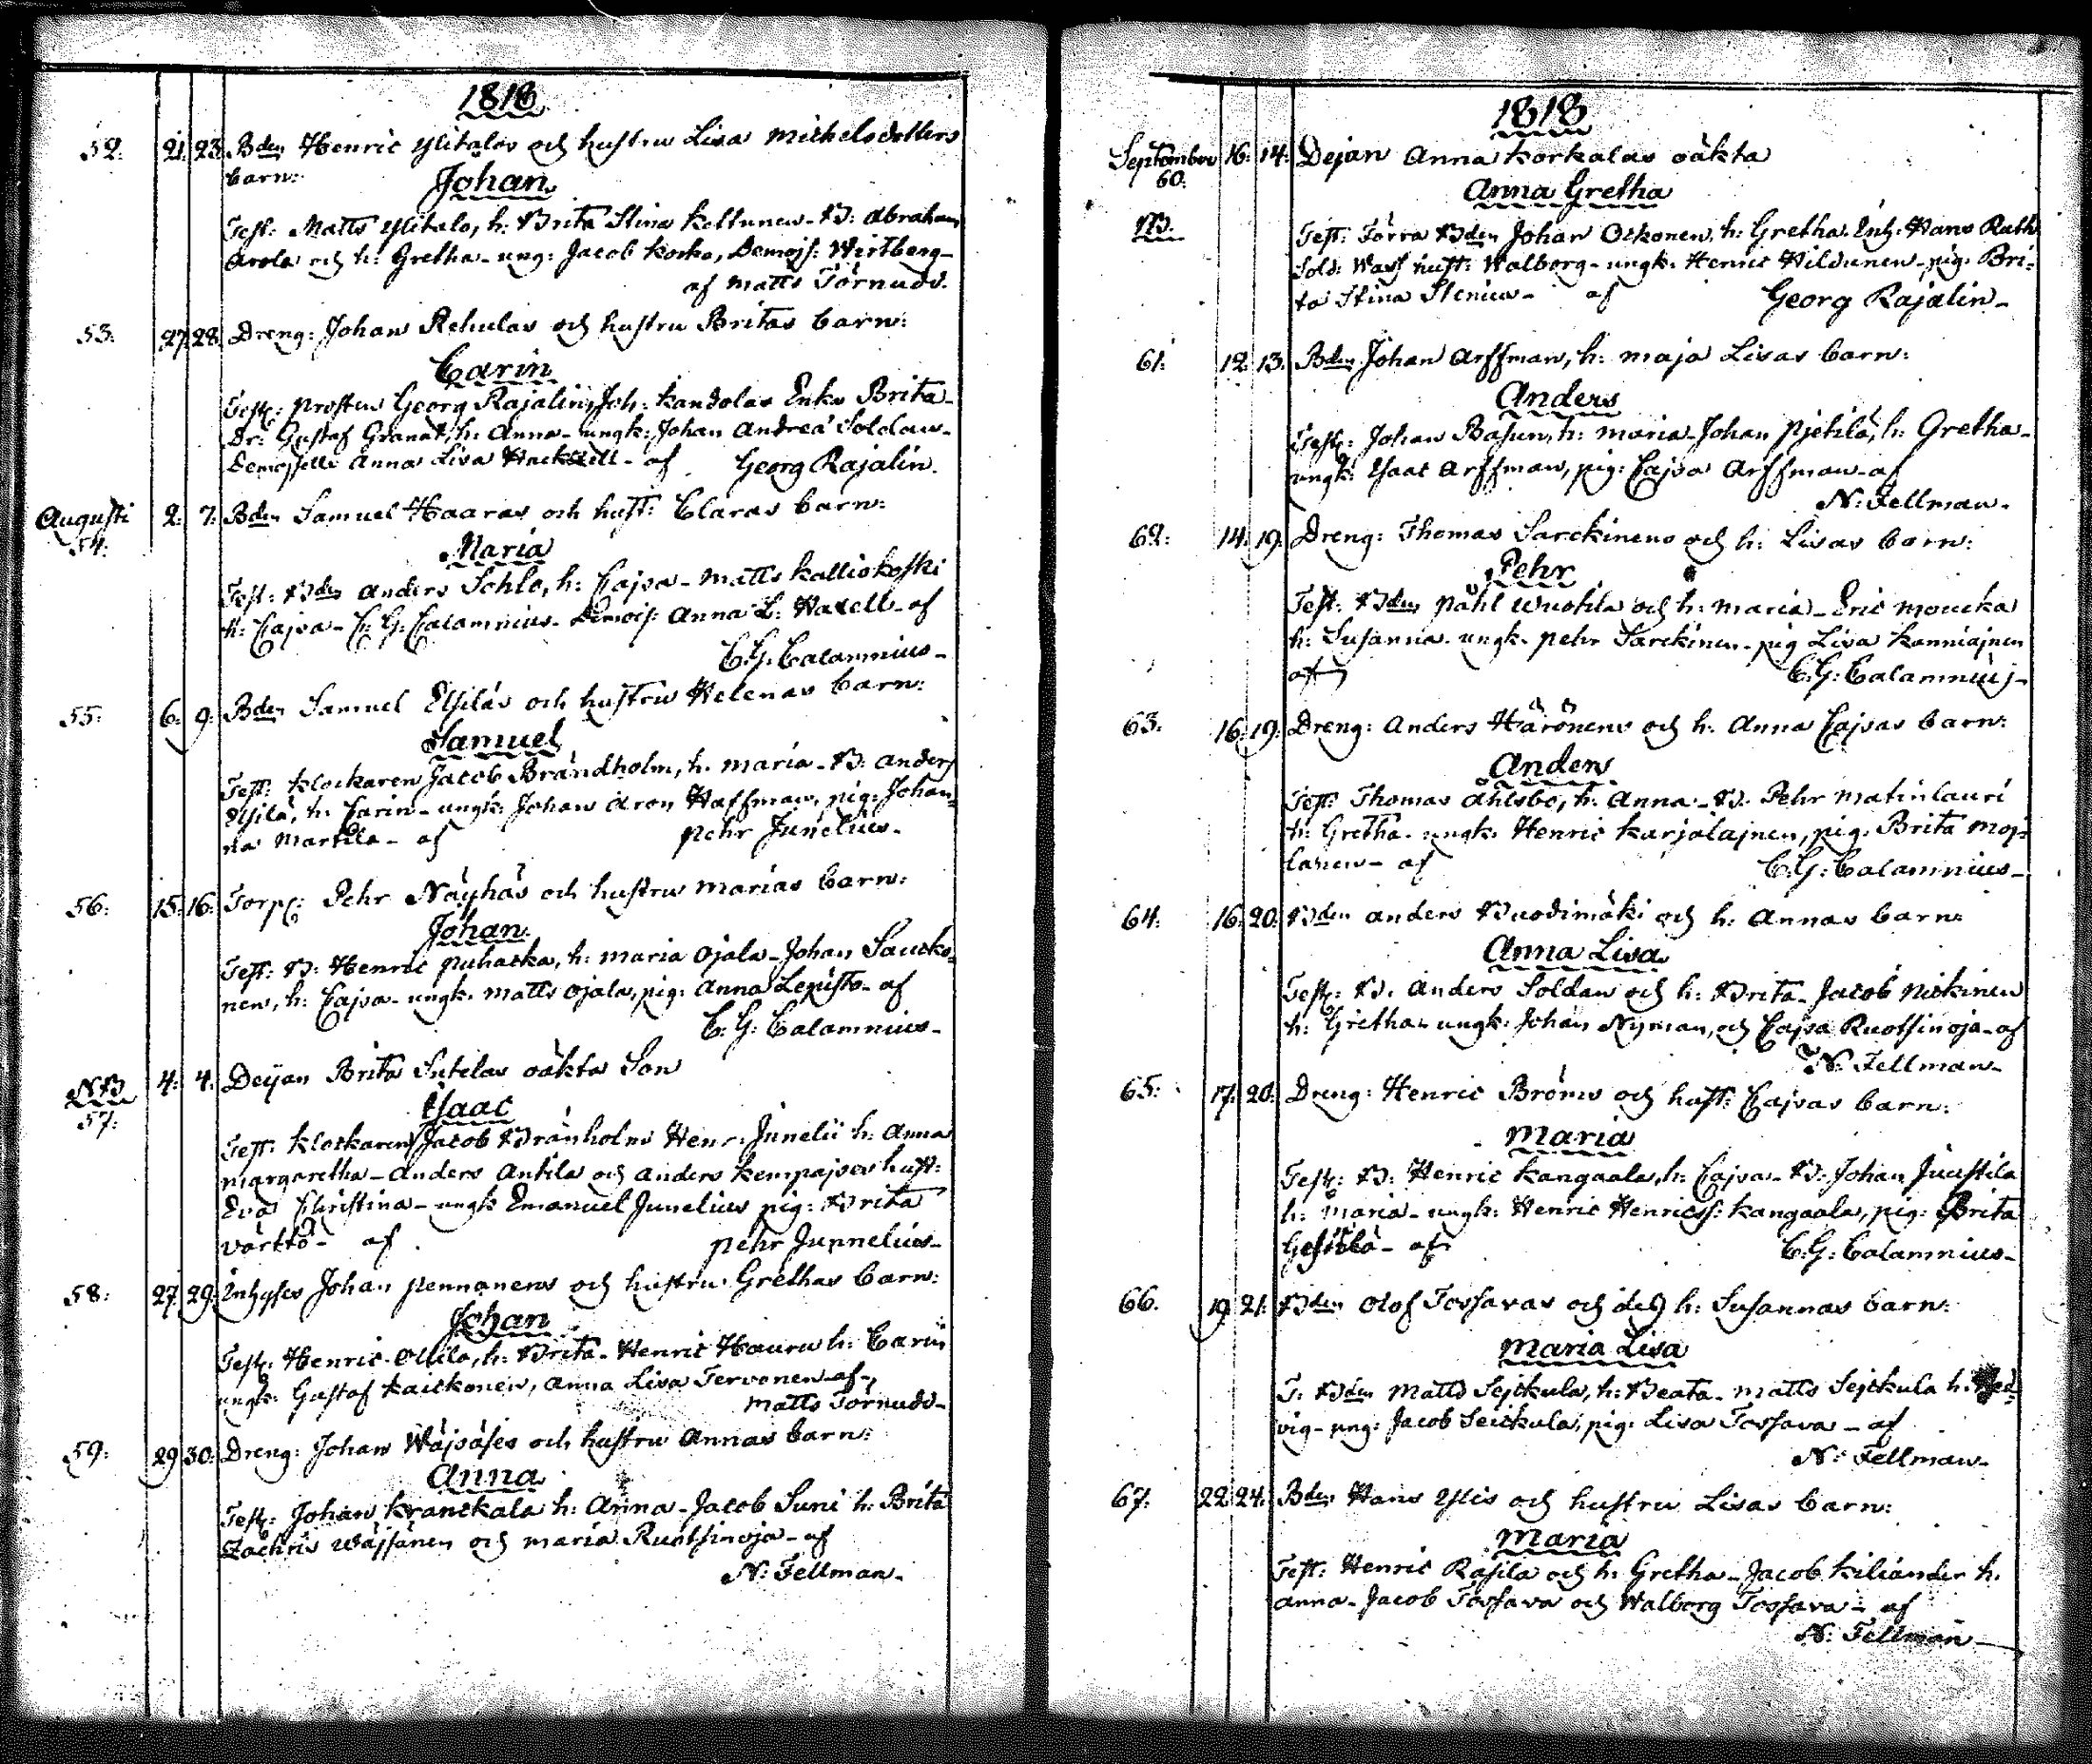 1818
52. 21. 23. Bden Henric Ylitalos och hustru Lisa Michelsdotters
barn:
Johan
Test: Matts Ylitalo, h: Brita Stina Keltunen - B: Abraham
Arola och h: Gretha - ung: Jacob Korko, Demojs: Wirtberg -
af Matts Törnudd.
53. 27. 28. Dreng: Johan Rehulas och hustru Britas barn:
Carin
Test: Prosten Georg Rajalin, Joh: Kandolas Enka Brita -
Dr: Gustaf Granat, h: Anna - ungk: Johan Andrea Soldan -
Demoiselle Anna Lisa - af Georg Rajalin.
Augusti
54. 2. 7. Bden Samuel Haaras och hust: Claras barn:
Maria
Test: Bden Anders Sohlo, h: Cajsa - Matts Kalliokoski
h: Cajsa - C: G: Calamnius - Demois: Anna L: - af
C: G: Calamnius -
55. 6. 9. Bden Samuel Elsiläs och hustru Helenas barn:
Samuel
Test: Klockaren Jacob Brandholm, h. Maria - B: Anders
Elsilä, h: Carin - ungk: Johan Aron Haffman, pig: Johan=
na Martila - af Pehr Junelius -
56. 15. 16. Torp: Pehr Näyhäs och hustru Marias barn:
Johan
Test: B: Henric Puhacka, h: Maria Ojala - Johan Saucko=
nen, h: Cajsa - ungk. Matts Ojala, pig: Anna - af
C: G: Calamnius -
NB
57. 4. 4. Deijan Brita Sutelas oäkta Son
Isaac
Test: Klockaren Jacob Branholm Henr: Junelii h: Anna
Margaretha - Anders Antila och Anders Kempajsen hust:
Eva Christina - ungk Emanuel Junelius pig: Brita
Värttö - af Pehr Junnelius -
58. 27. 29. Inhyses Johan Pennanens och hustru Grethas barn:
Johan
Test: Henric Ollila, h: Brita - Henric Hauru h: Carin
ungk: Gustaf Kaickonen, Anna Lisa Tervonen - af
Matts Törnudd -
59. 29. 30. Dreng: Johan Wäjsäses och hustru Annas barn:
Anna
Test: Johan Kranckala h: Anna - Jacob Suni h: Brita
Zachris Wäjsänen och Maria Ruotsinoja - af
N: Fellman -
1818
September 16. 14. Dejan Anna Korkalas oäkta
60.
Anna Gretha
NB. Test: Förra Bden Johan Ockonen, h: Gretha. Inh: Hans Rath
Sold: Wass hust: Walborg - ungk: Henric Hildunen - pig: Bri=
ta Stina Stenius - af Georg Rajalin -
61. 12. 13. Bden Johan Arffman, h: Maja Lisas barn:
Anders
Test: Johan Basun, h: Maria - Johan Pjetilä, h: Gretha -
ungk: Isaac Arffman, pig: Cajsa Arffman - af
N: Fellman -
62. 14. 19. Dreng: Thomas Sarckinens och h: Lisas barn:
Pehr
Test: Bden Påhl Wuotila och h: Maria - Eric Moucka
h: Susanna - ungk. Pehr Sarckinen - pig Lisa Kanniajnen
af C: G: Calamnius -
63. 16. 19. Dreng: Anders Härönens och h: Anna Cajsas barn:
Anders
Test: Thomas Ahlsbo, h: Anna - B. Pehr Matinlauri
h: Gretha - ungk: Henric Karjalajnen, pig: Brita Moj=
lanen - af C: G: Calamnius -
64. 16. 20. Bden Anders Buodimäki och h: Annas barn:
Anna Lisa
Test: B. Anders Soldan och h: Brita - Jacob Nickinen
h: Gretha - ungk: Johan Nyman, och Cajsa Ruotsinoja - af
N: Fellman -
65. 17. 20. Dreng: Henric Bröms och hust: Cajsas barn:
Maria
Test: B: Henric Kangaala, h: Cajsa - B: Johan Juustila
h: Maria - ungk: Henric Henricss: Kangaala, pig: Brita
- af C: G: Calamnius -
66. 19. 21. Bden Olof Tossavas och des h: Susannas barn:
Maria Lisa
T: Bden Matts Sejckula, h: Beata - Matts Sejckula h: Hed=
vig - ung: Jacob Seickula, pig: Lisa Tossava - af
N: Fellman -
67. 22. 24. Bden Hans Ylis och hustru Lisas barn:
Maria
Test: Henric Rasila och h: Gretha - Jacob Kiliander h.
Anna - Jacob Tossava och Walborg Tossava - af
N: Fellman